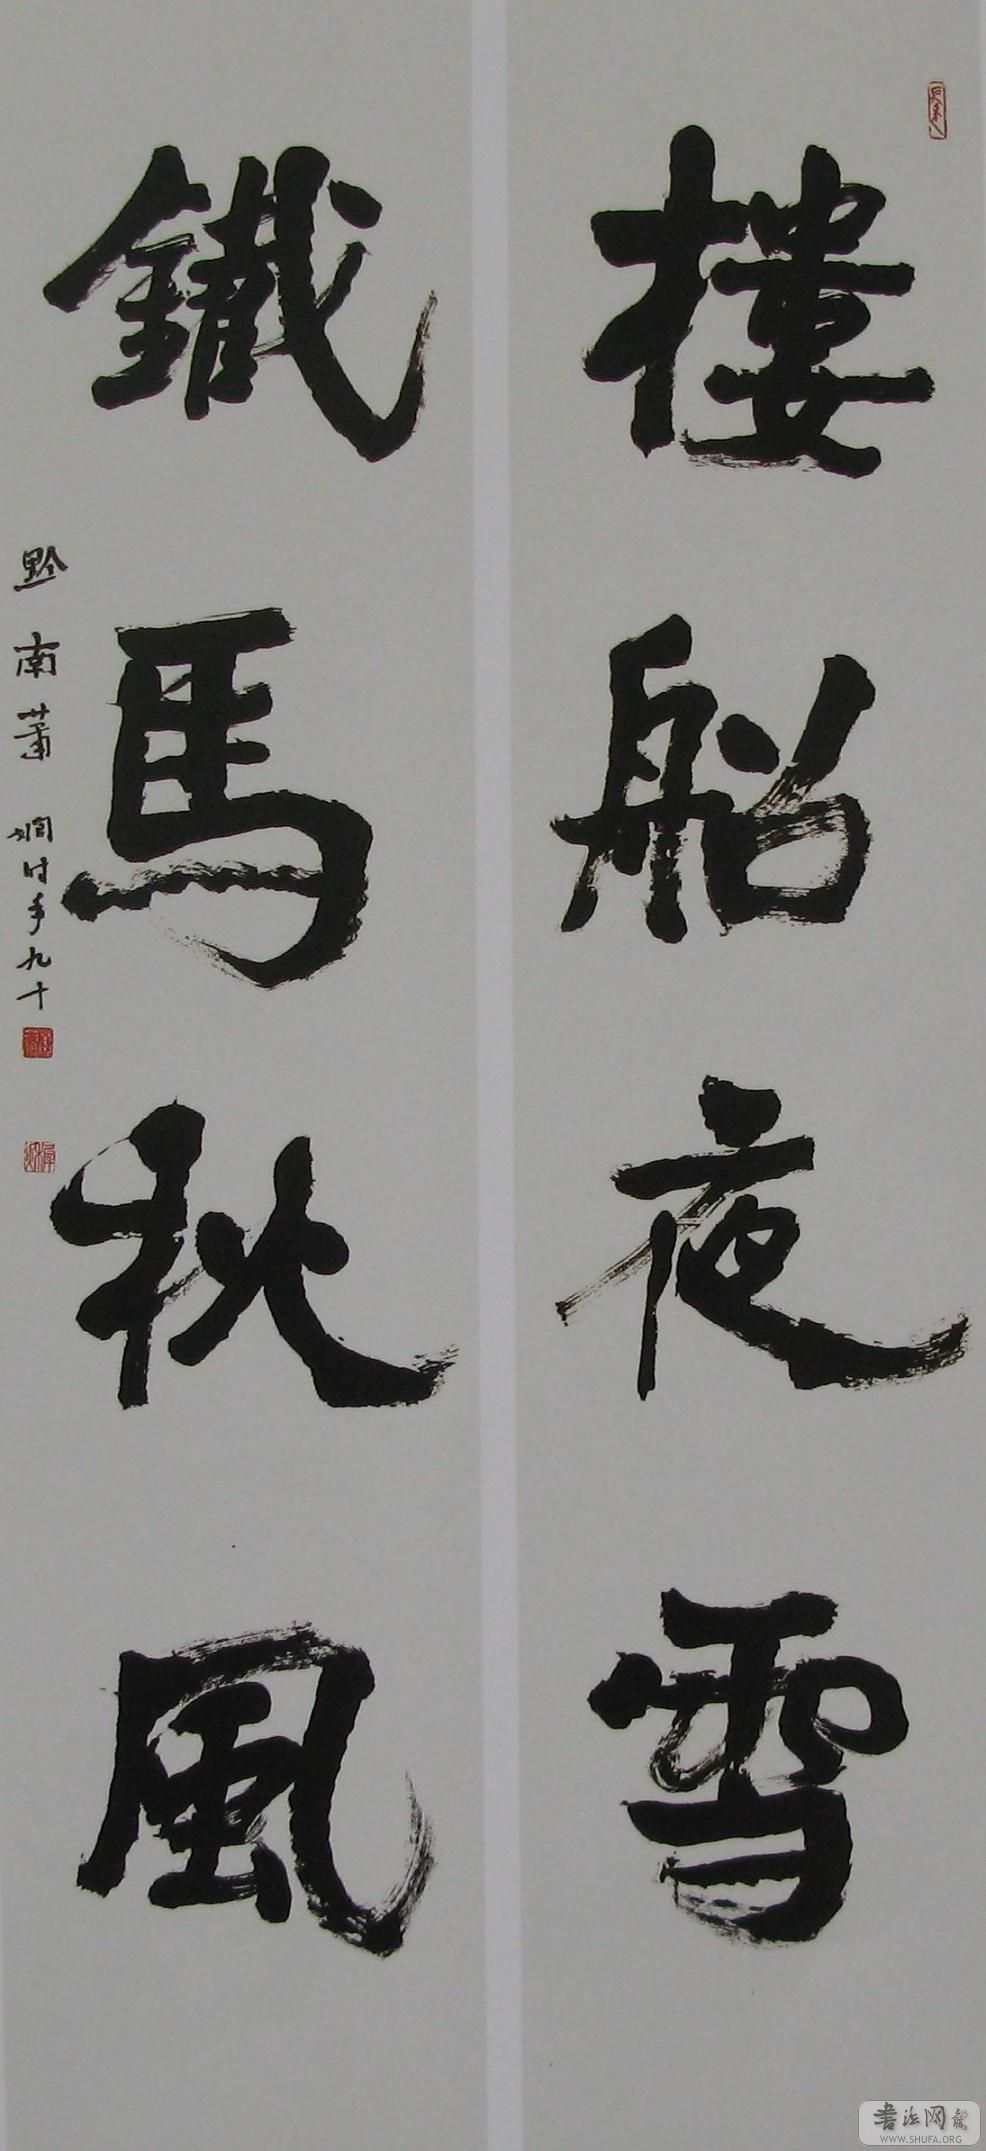 樓船夜雪
鐵馬秋風
黔南蕭嫻时年九十
书法网
WWW.SHUFA.ORG